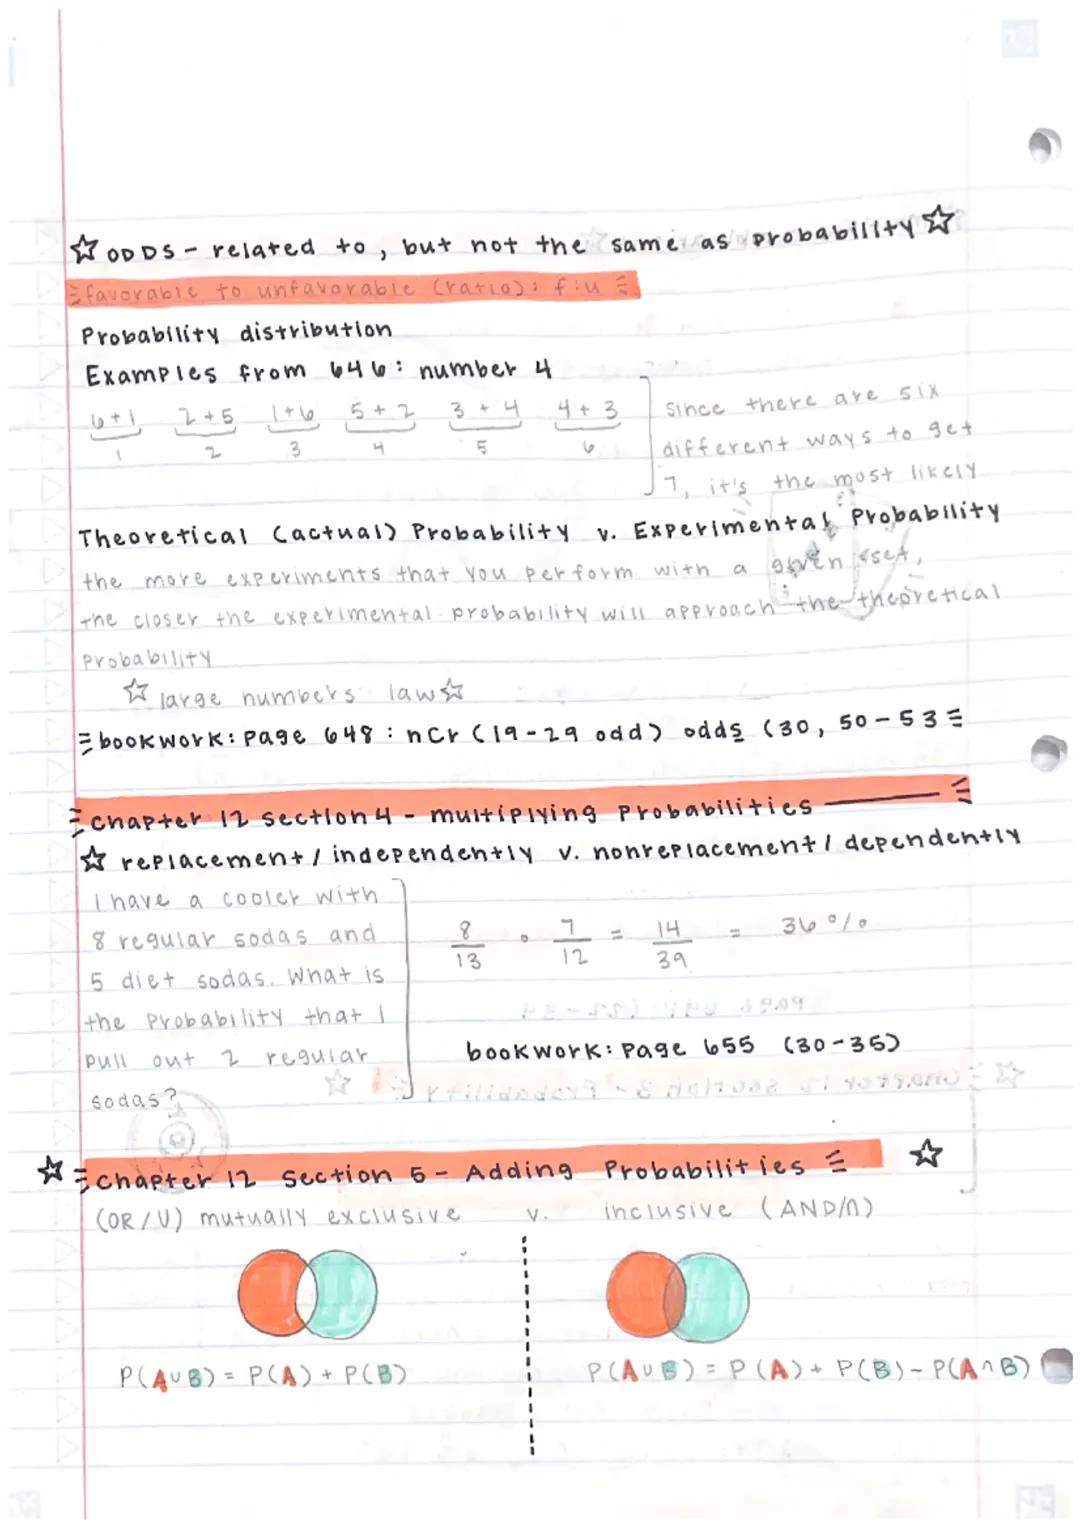 ☆ ODDS - related to, but not the same as probability ☆
favorable to unfavorable (ratio): f:u
Probability distribution
Examples from 646: number 4
6+1 2+5 1+6 5+2 3+4 4+3
1 2 3 4 5 6
since there are six
different ways to get
7, it's the most likely
Theoretical (actual) Probability v. Experimental Probability
the more experiments that you perform with a given set,
the closer the experimental probability will approach the theoretical
probability
☆ large numbers law ☆
bookwork: page 648: nCr (19-29 odd) odds (30, 50-53
chapter 12 section 4 - multiplying Probabilities
☆ replacement / independently v. nonreplacement / dependently
I have a cooler with
8 regular sodas and
5 diet sodas. What is
the probability that I
pull out 2 regular
sodas?
8/13 • 7/12 = 14/39 = 36%
bookwork: page 655 (30-35)
☆ chapter 12 section 5 - Adding Probabilities ☆
(OR/U) mutually exclusive v. inclusive (AND/∩)
P(A∪B) = P(A) + P(B)
P(A∪B) = P(A) + P(B) - P(A∩B)